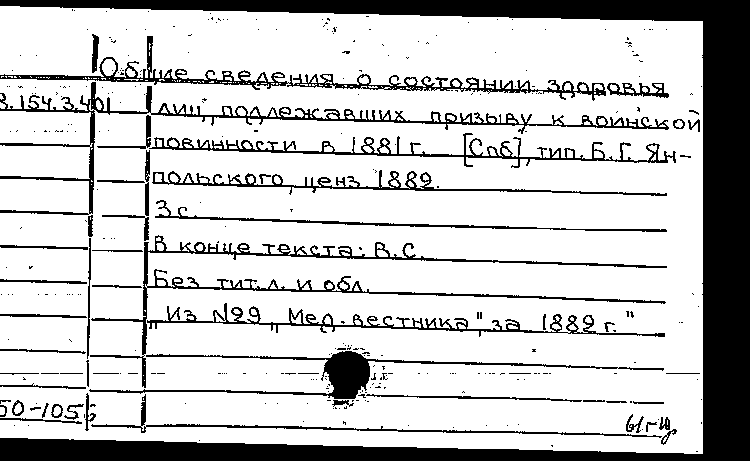 Общие сведения о состоянии здоровья
8.154.3.401 лиц, подлежавших призыву к воинской
повинности в 1881 г. [Спб], тип. Б.Г. Ян-
польского, ценз 1882.
3 с.
В конце текста: В.С.
Без тит.л. и обл.
„Из №29 „Мед. вестника", за 1882 г."
50-1056